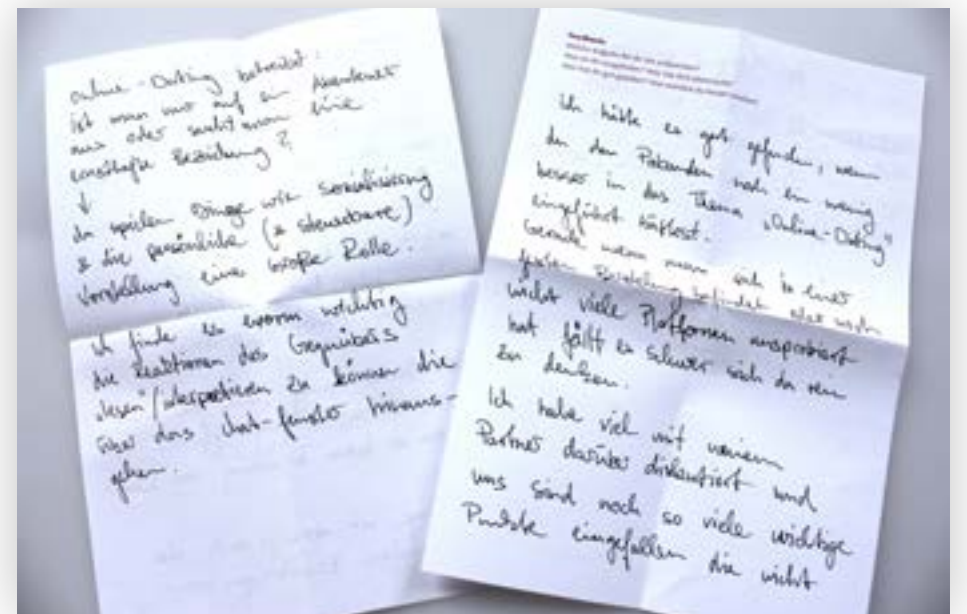 online-Dating betreibt:
ist man nur auf ein Abenteuer
aus oder sucht man eine
ernsthafte Beziehung?
↓
da spielen Dinge wie Sozialisierung
& die persönliche (& steuerbare)
Vorstellung eine große Rolle.
ich finde es enorm wichtig
die Reaktionen des Gegenübers
"lesen"/interpretieren zu können die
über das Chat-fenster hinaus-
gehen.
Ich hätte es gut gefunden, wenn
du den Probanden noch ein wenig
besser in das Thema „Online-Dating"
eingeführt hättest.
Gerade wenn man sich in einer
festen Beziehung befindet oder noch
nicht viele Plattformen ausprobiert
hat fällt es schwer sich da rein
zu denken.
Ich habe viel mit meinem
Partner darüber diskutiert und
uns sind noch so viele wichtige
Punkte eingefallen die nicht